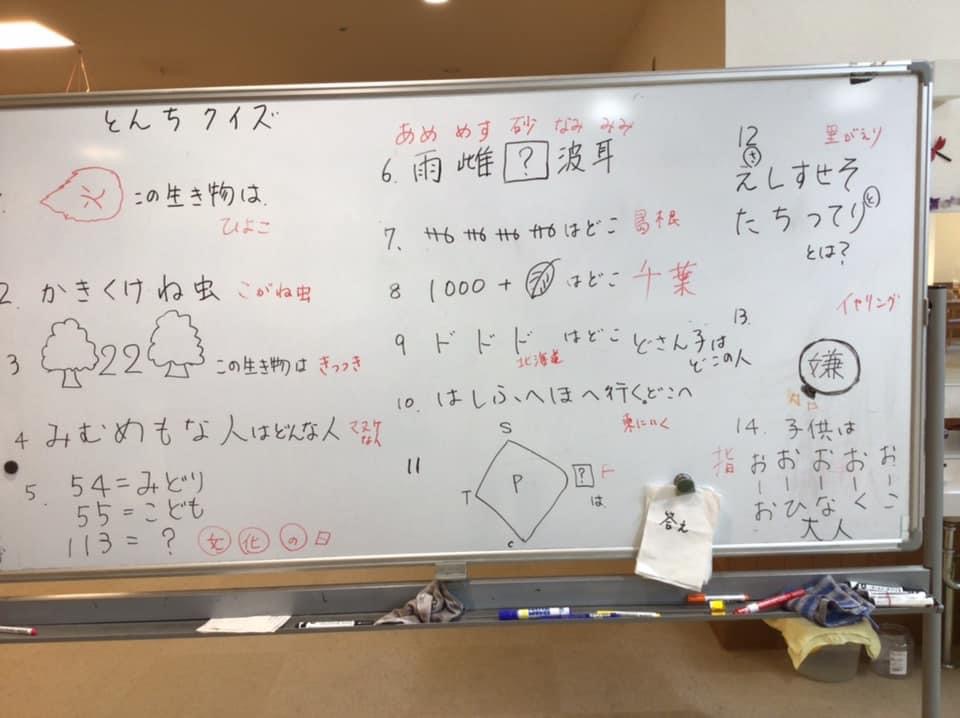 とんちクイズ
この生き物は
ひよこ
2. かきくけね虫 こがね虫
3 22 この生き物は きつつき
4 みむめもな人はどんな人 マヌケなん
5. 54=みどり
55=こども
113=? 文化の日
あめ めす 砂 なみ みみ
6. 雨 雌 ? 波 耳
7. はどこ 島根
8 1000+ はどこ 千葉
9 ド ド ド はどこ
北海道
どさん子は
どこの人
10. はしふへほへ行くどこへ
東にいく
11
S
P
T
C
? F
は
答え
12 里がえり
さ
えしすせそ
たちってり と
とは?
13.
イヤリング
嫌
14. 子供は
指
おーお
おーひ
おーな
おーく
おーこ
大人